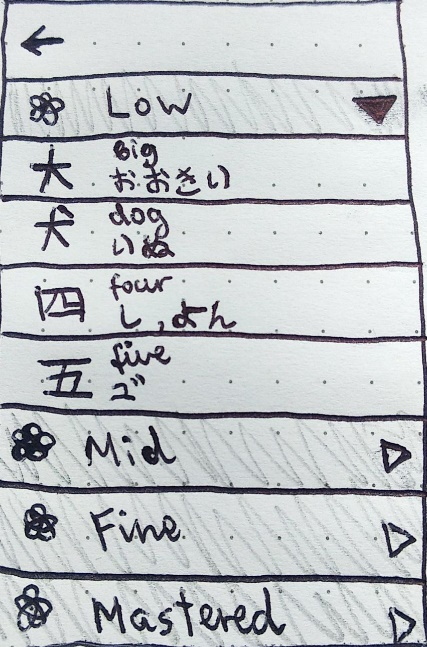 ←
Low
大
Big
おおきい
犬
dog
いぬ
四
four
し,よん
五
five
ご
Mid
Fine
Mastered